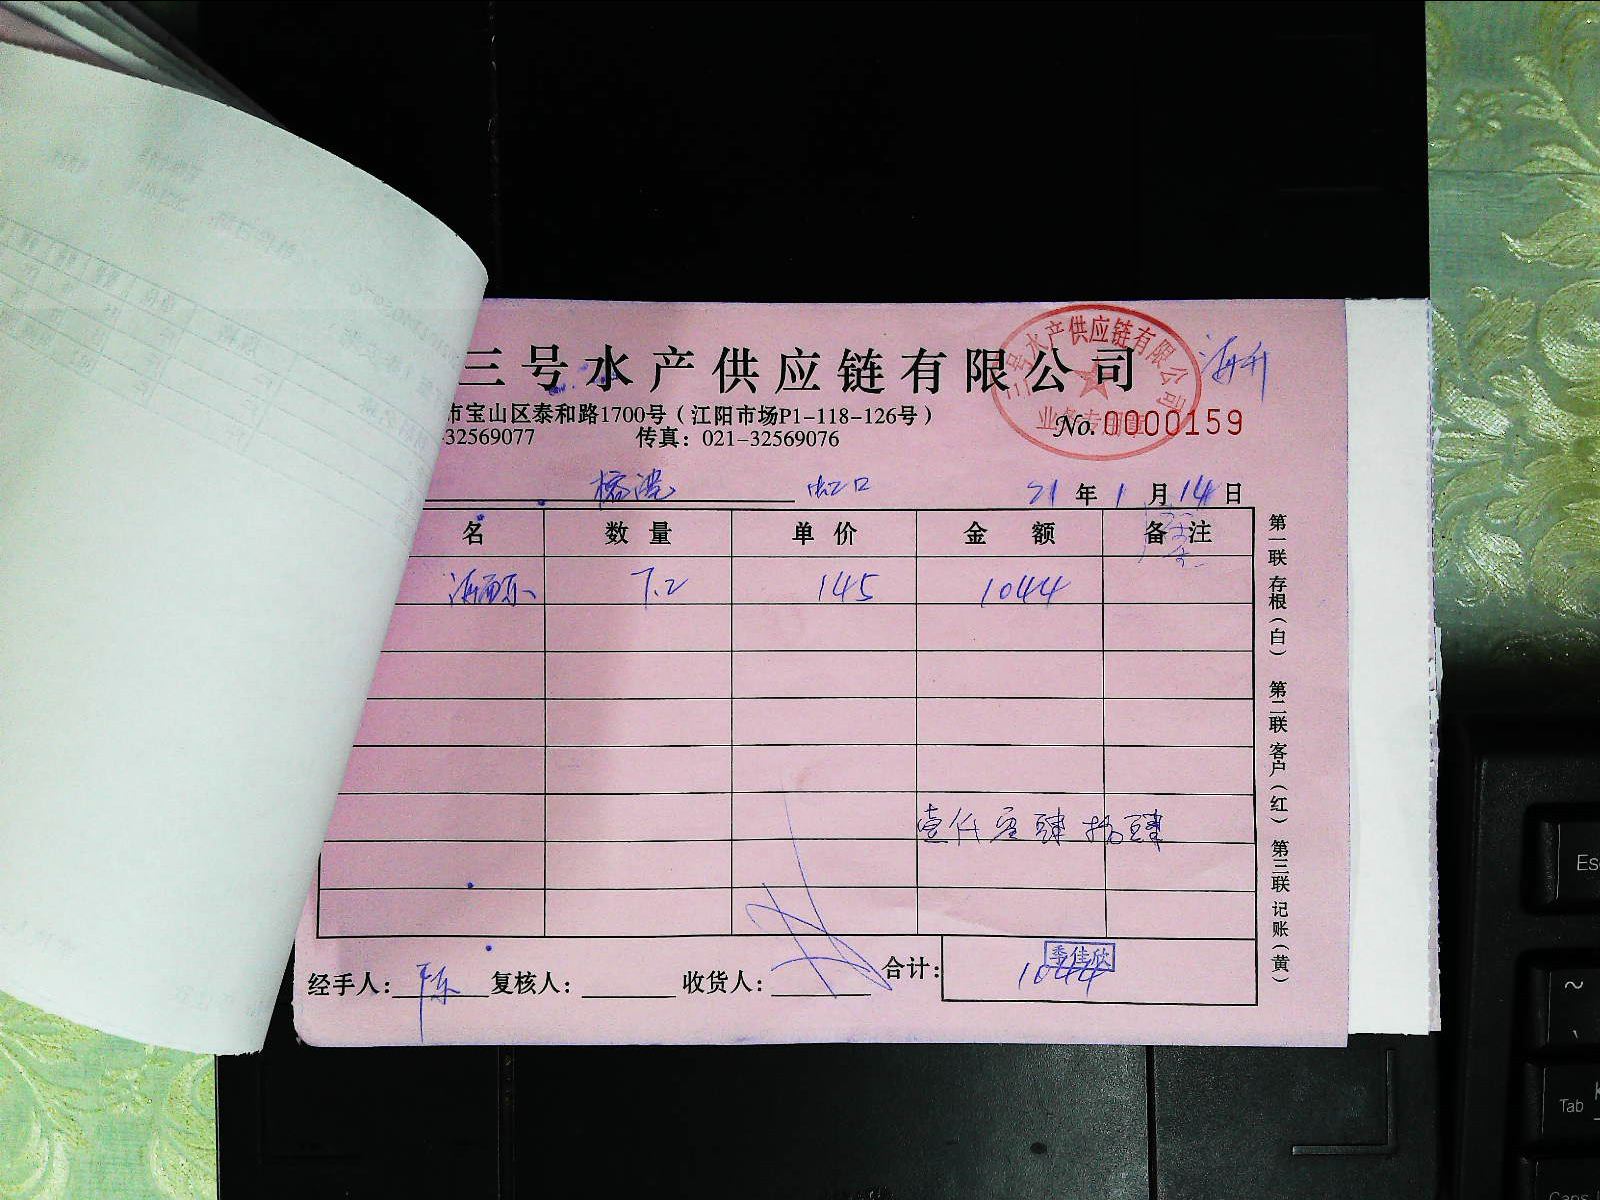 三号水产供应链有限公司
三号水产供应链有限公司
业务专用章
海升
市宝山区泰和路1700号（江阳市场P1-118-126号）
No.0000159
-32569077 传真：021-32569076
榕港 虹口 21年1月14日
名 数量 单价 金额 备注
7.2 145 1044
壹仟零肆拾肆
经手人：陈 复核人： 收货人： 合计：1044
季佳欣
第一联存根（白） 第二联客户（红） 第三联记账（黄）
Esc
~
Tab
Caps